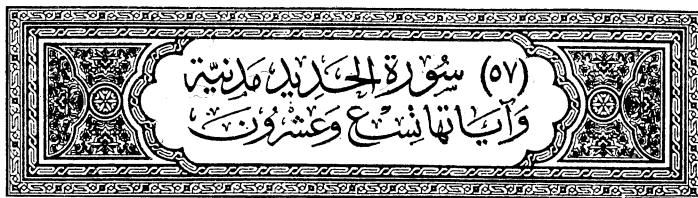 (٥٧) سُورَة الحَديد مَدنيَّة
وَآيَاتهَا تِسْع وَعشْرُونَ